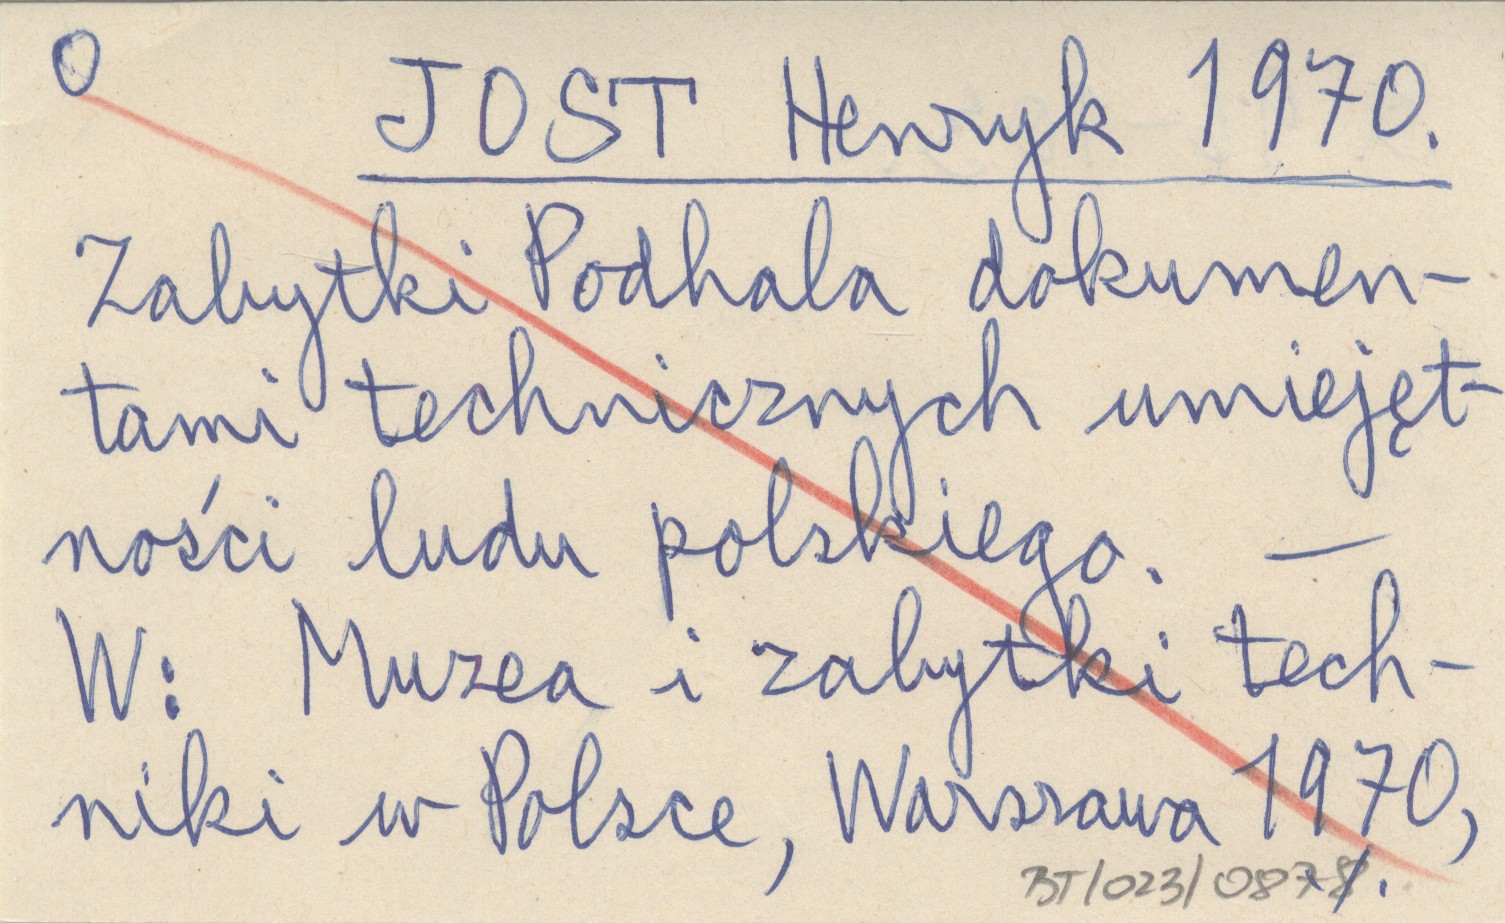 O JOST Henryk 1970.
Zabytki Podhala dokumen-
tami technicznych umiejęt-
ności ludu polskiego. —
W: Muzea i zabytki tech-
niki w Polsce, Warszawa 1970,
BT/023/0878 ./.